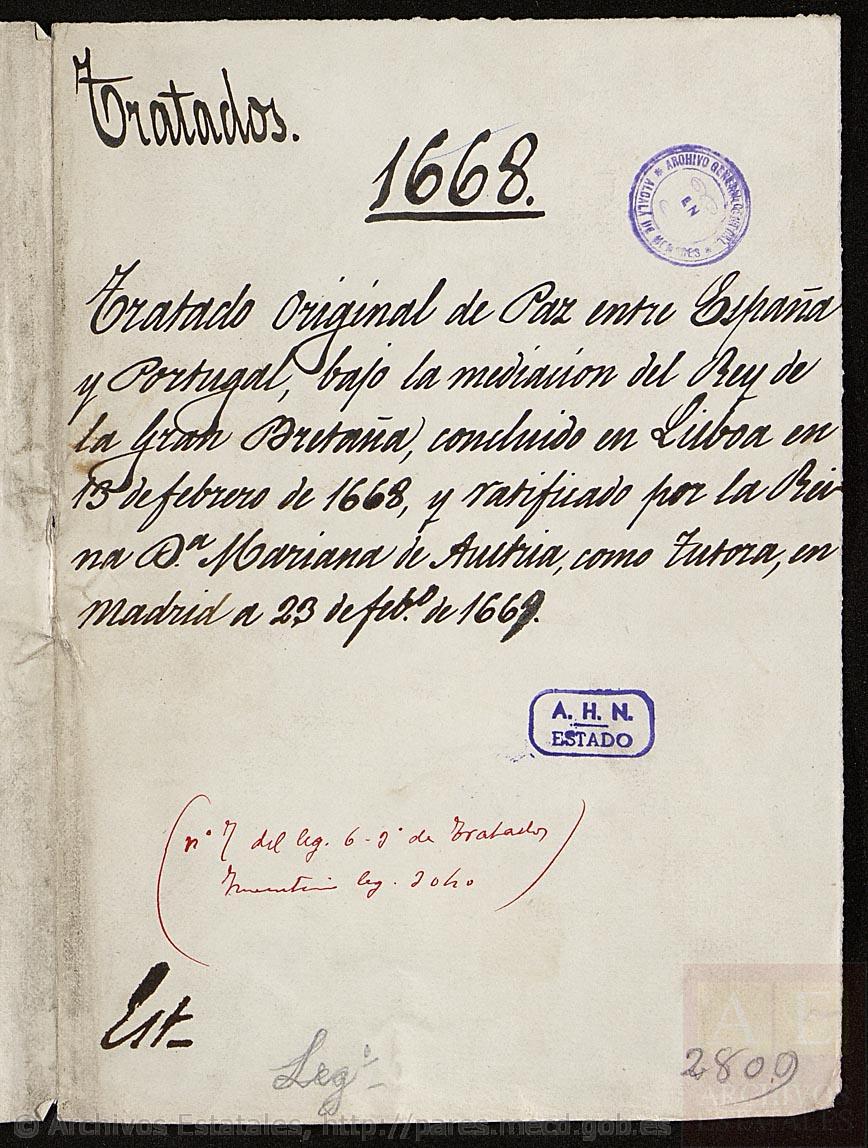 Tratados.
1668.
* ARCHIVO GENERAL CENTRAL * ALCALÁ DE HENARES
EN
Tratado Original de Paz entre España
y Portugal, bajo la mediacion del Rey de
la Gran Bretaña, concluido en Lisboa en
13 de febrero de 1668, y ratificado por la Rei-
na D.ª Mariana de Austria, como Tutora, en
Madrid a 23 de feb.º de 1669.
A. H. N.
ESTADO
(nº 7 del leg. 6-2º de Tratados
leg.
Est-
Legº
2809
AE
ARCHIVOS
ESTATALES
© Archivos Estatales, http://pares.mecd.gob.es